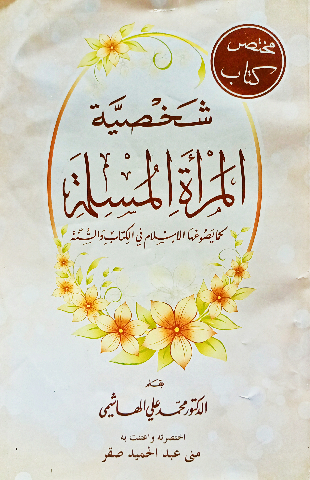 مختصر
كتاب
شَخْصِيَّة
المَرْأَةِ المُسْلِمَة
كما يصوغها الإسلام في الكتاب والسُّنَّة
بقلم
الدكتور محمد علي الهاشمي
اختصرته واعتنت به
منى عبد الحميد صقر